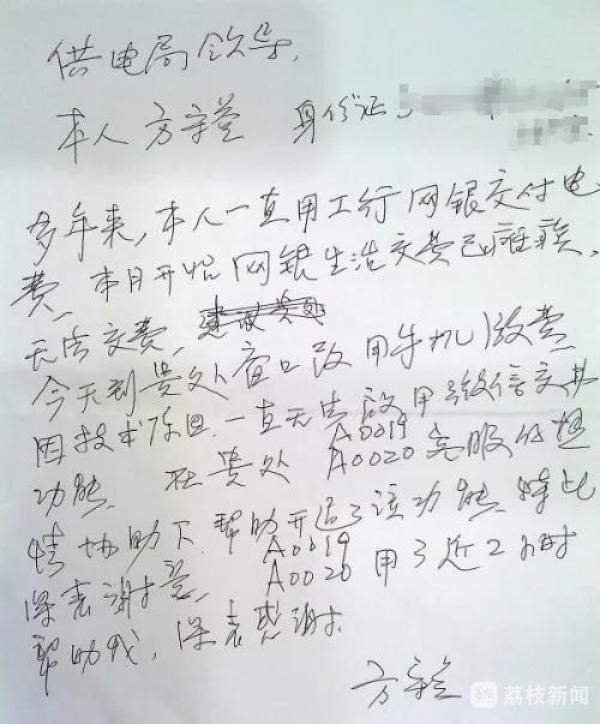 供电局领导,
本人方宗莹 身份证,
多年来,本人一直用工行网银交付电
费、本月开始网银生活交费已瘫痪,
无法交费,建议贵处
今天到贵处窗口改用手机缴费
因技术原因一直无法启用微信交费
功能. 在贵处 A0019 A0020 克服仍热
情协助下,帮助开通了该功能.特此
深表谢意, A0019 A0020 用了近2小时
帮助我,深表感谢.
方宗莹
荔枝新闻